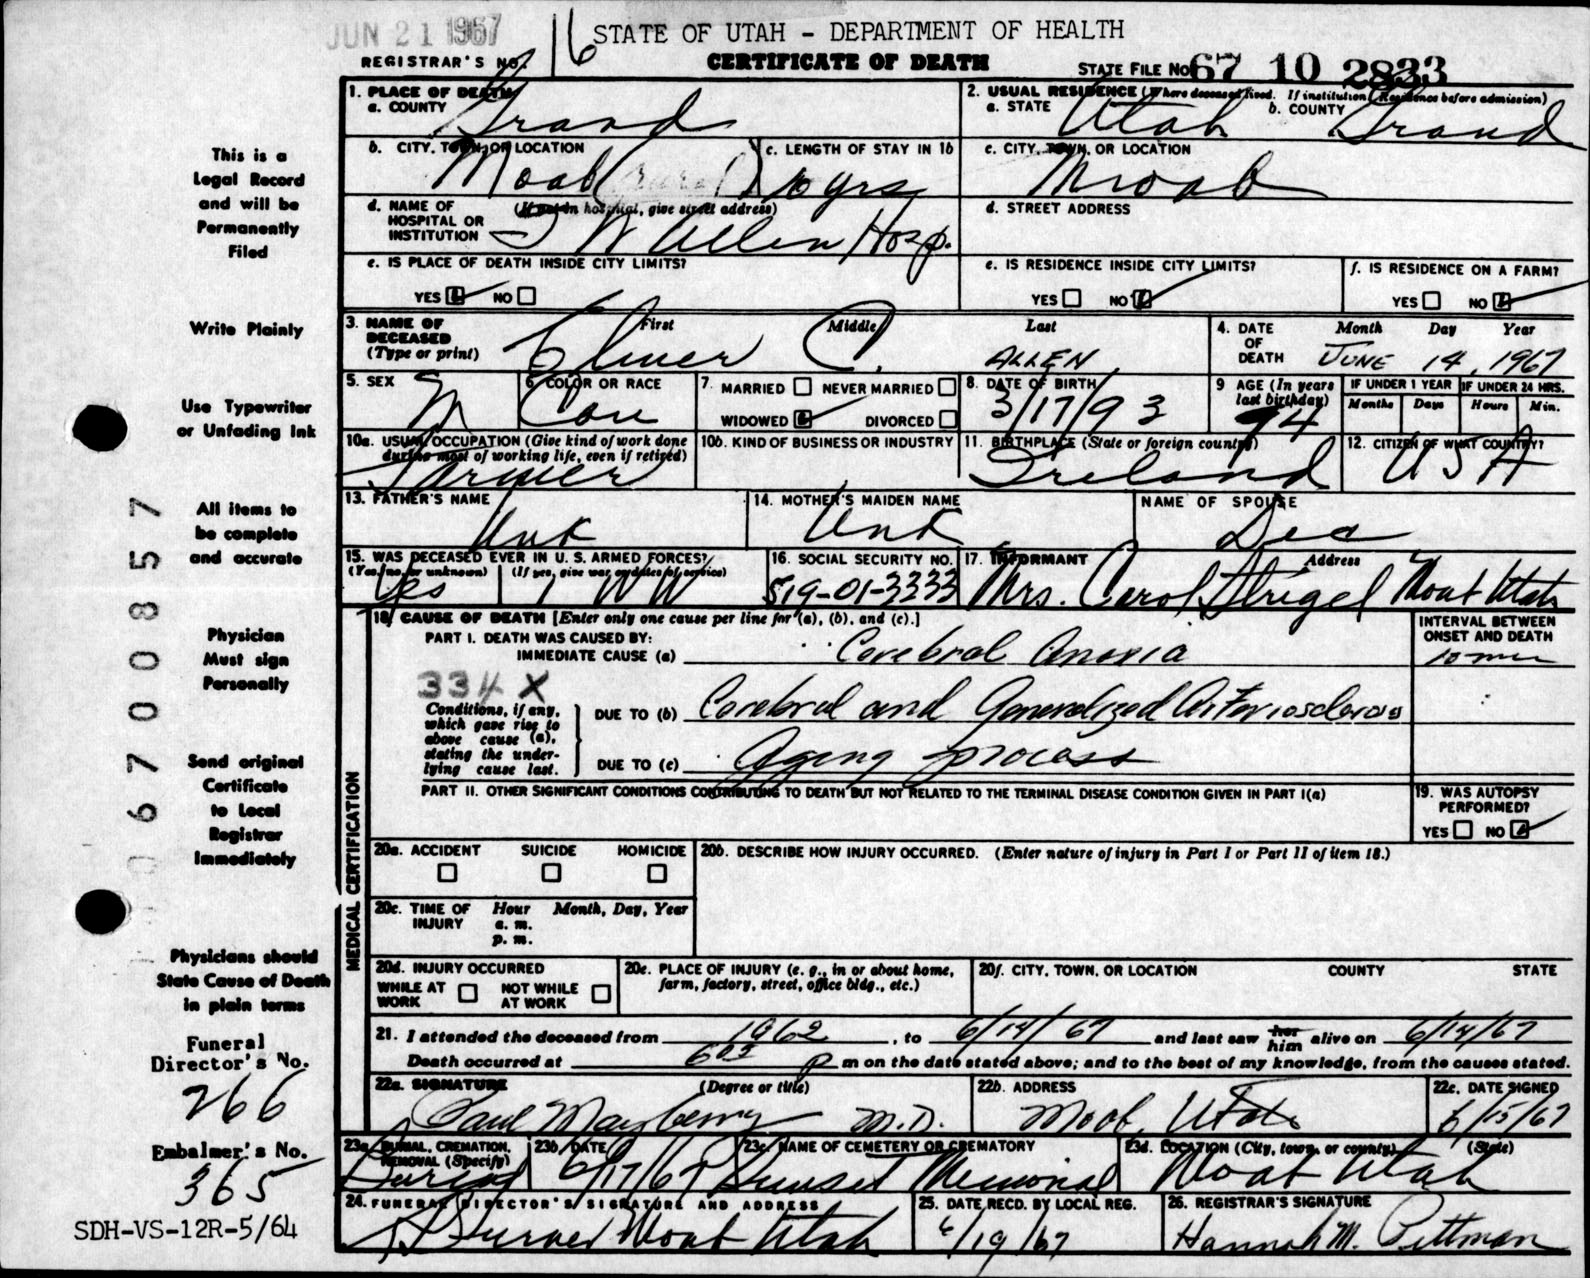 JUN 21 1967
STATE OF UTAH - DEPARTMENT OF HEALTH
REGISTRAR'S NO. 16
CERTIFICATE OF DEATH
STATE FILE NO. 67 10 2833
This is a
Legal Record
and will be
Permanently
Filed
Write Plainly
Use Typewriter
or Unfading Ink
All items to
be complete
and accurate
Physician
Must sign
Personally
Send original
Certificate
to Local
Registrar
Immediately
Physicians should
State Cause of Death
in plain terms
Funeral
Director's No.
266
Embalmer's No.
365
SDH-VS-12R-5/64
6700857
1. PLACE OF DEATH
a. COUNTY Grand
2. USUAL RESIDENCE (Where deceased lived. If institution: Residence before admission)
a. STATE Utah b. COUNTY Grand
b. CITY, TOWN, OR LOCATION Moab (rural)
c. LENGTH OF STAY IN 1b 10 yrs
c. CITY, TOWN, OR LOCATION Moab
d. NAME OF HOSPITAL OR INSTITUTION (If not in hospital, give street address) I W Allen Hosp.
d. STREET ADDRESS
e. IS PLACE OF DEATH INSIDE CITY LIMITS?
YES NO
e. IS RESIDENCE INSIDE CITY LIMITS?
YES NO
f. IS RESIDENCE ON A FARM?
YES NO
3. NAME OF DECEASED (Type or print) First Middle Last
Elmer C. ALLEN
4. DATE OF DEATH Month Day Year
JUNE 14, 1967
5. SEX M
6. COLOR OR RACE Cau
7. MARRIED NEVER MARRIED
WIDOWED DIVORCED
8. DATE OF BIRTH 3/17/93
9 AGE (In years last birthday) 74
IF UNDER 1 YEAR Months Days
IF UNDER 24 HRS. Hours Min.
10a. USUAL OCCUPATION (Give kind of work done during most of working life, even if retired) Farmer
10b. KIND OF BUSINESS OR INDUSTRY
11. BIRTHPLACE (State or foreign country) Ireland
12. CITIZEN OF WHAT COUNTRY? USA
13. FATHER'S NAME Unk
14. MOTHER'S MAIDEN NAME Unk
NAME OF SPOUSE Dec
15. WAS DECEASED EVER IN U. S. ARMED FORCES?
(Yes, no, or unknown) (If yes, give war or dates of service)
Yes I WW
16. SOCIAL SECURITY NO. 519-01-3333
17. INFORMANT Address
Mrs. Carol Strigel Moab Utah
MEDICAL CERTIFICATION
18. CAUSE OF DEATH [Enter only one cause per line for (a), (b), and (c).]
INTERVAL BETWEEN ONSET AND DEATH
PART I. DEATH WAS CAUSED BY:
IMMEDIATE CAUSE (a) Cerebral Anoxia 10 min
334 X
Conditions, if any, which gave rise to above cause (a), stating the underlying cause last.
DUE TO (b) Cerebral and Generalized Arteriosclerosis
DUE TO (c) Aging process
PART II. OTHER SIGNIFICANT CONDITIONS CONTRIBUTING TO DEATH BUT NOT RELATED TO THE TERMINAL DISEASE CONDITION GIVEN IN PART I(a)
19. WAS AUTOPSY PERFORMED?
YES NO
20a. ACCIDENT SUICIDE HOMICIDE
20b. DESCRIBE HOW INJURY OCCURRED. (Enter nature of injury in Part I or Part II of item 18.)
20c. TIME OF INJURY Hour Month, Day, Year
a. m.
p. m.
20d. INJURY OCCURRED
WHILE AT WORK NOT WHILE AT WORK
20e. PLACE OF INJURY (e. g., in or about home, farm, factory, street, office bldg., etc.)
20f. CITY, TOWN, OR LOCATION COUNTY STATE
21. I attended the deceased from 1962, to 6/14/67 and last saw her him alive on 6/14/67
Death occurred at 6 05 p m on the date stated above; and to the best of my knowledge, from the causes stated.
22a. SIGNATURE (Degree or title)
Paul Mayberry M.D.
22b. ADDRESS Moab, Utah
22c. DATE SIGNED 6/15/67
23a. BURIAL, CREMATION, REMOVAL (Specify) Burial
23b. DATE 6/17/67
23c. NAME OF CEMETERY OR CREMATORY Sunset Memorial
23d. LOCATION (City, town, or county) (State) Moab Utah
24. FUNERAL DIRECTOR'S SIGNATURE AND ADDRESS
Moab Utah
25. DATE RECD. BY LOCAL REG. 6/19/67
26. REGISTRAR'S SIGNATURE
Hannah M. Pittman